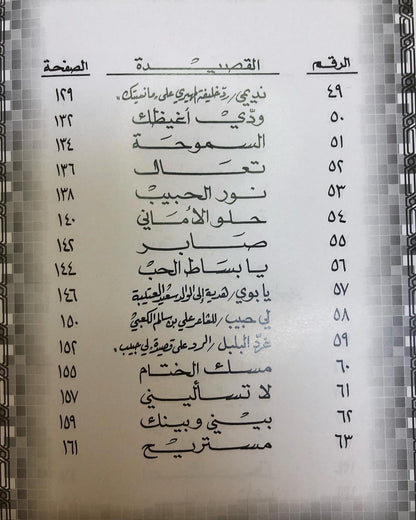 الرقم القصيدة الصفحة
٤٩ نديمي / رد خليفة المهيري على ما نسيتك. ١٢٩
٥٠ ودّي أغيظك ١٣٢
٥١ السموحة ١٣٤
٥٢ تعال ١٣٦
٥٣ نور الحبيب ١٣٨
٥٤ حلو الأماني ١٤٠
٥٥ صابر ١٤٢
٥٦ يا بساط الحب ١٤٤
٥٧ يا بوي / هدية إلى الوالد سعيد ١٤٦
٥٨ لي حبيب / للشاعر علي بن سالم الكعبي ١٥٠
٥٩ غرّد البلبل / الرد على قصيدة لي حبيب. ١٥٢
٦٠ مسك الختام ١٥٥
٦١ لا تسأليني ١٥٧
٦٢ بيني وبينك ١٥٩
٦٣ مستريح ١٦١